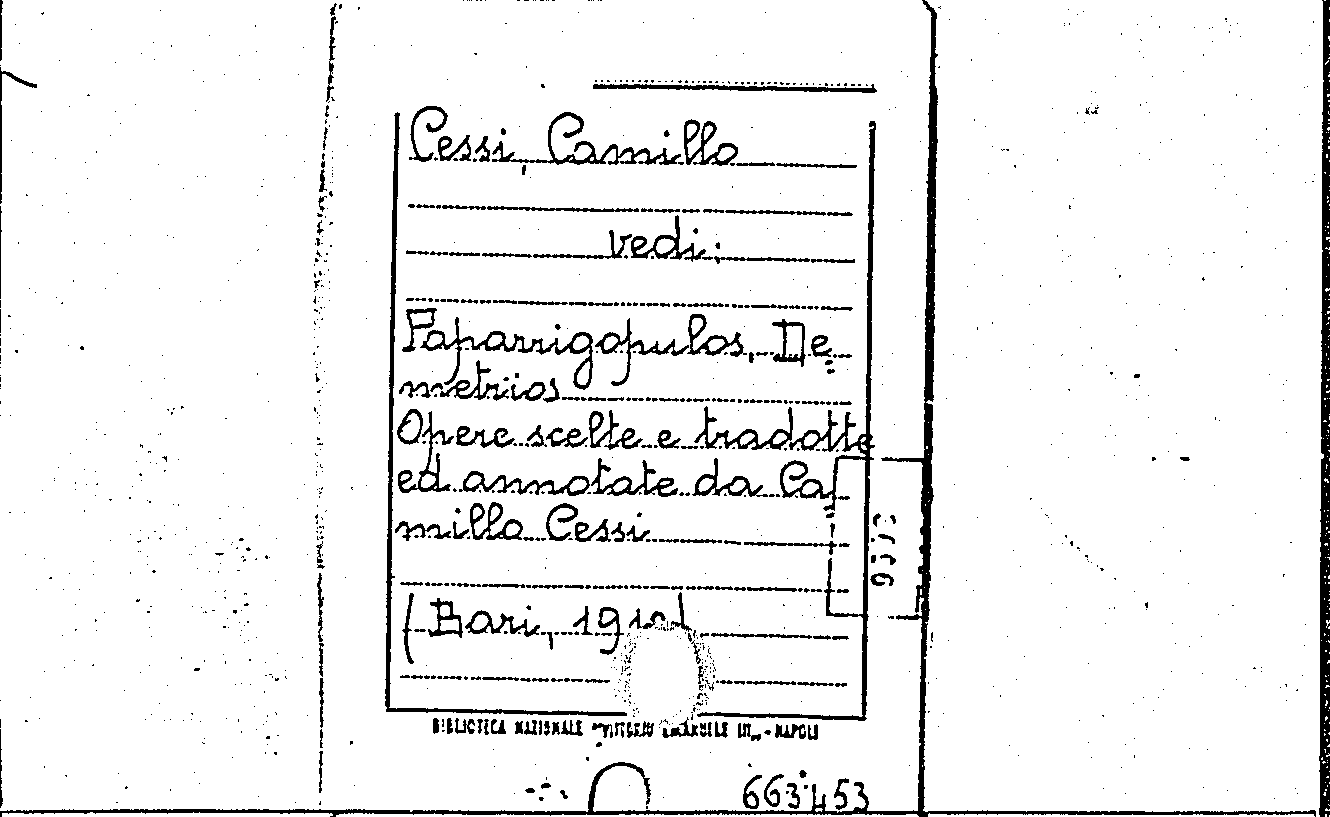 Cessi, Camillo
vedi:
Paparrigopulos, De=
metrios
Opere scelte e tradotte
ed annotate da Ca=
millo Cessi
(Bari,
BIBLIOTECA NAZIONALE "VITTORIO EMANUELE III" - NAPOLI
663453